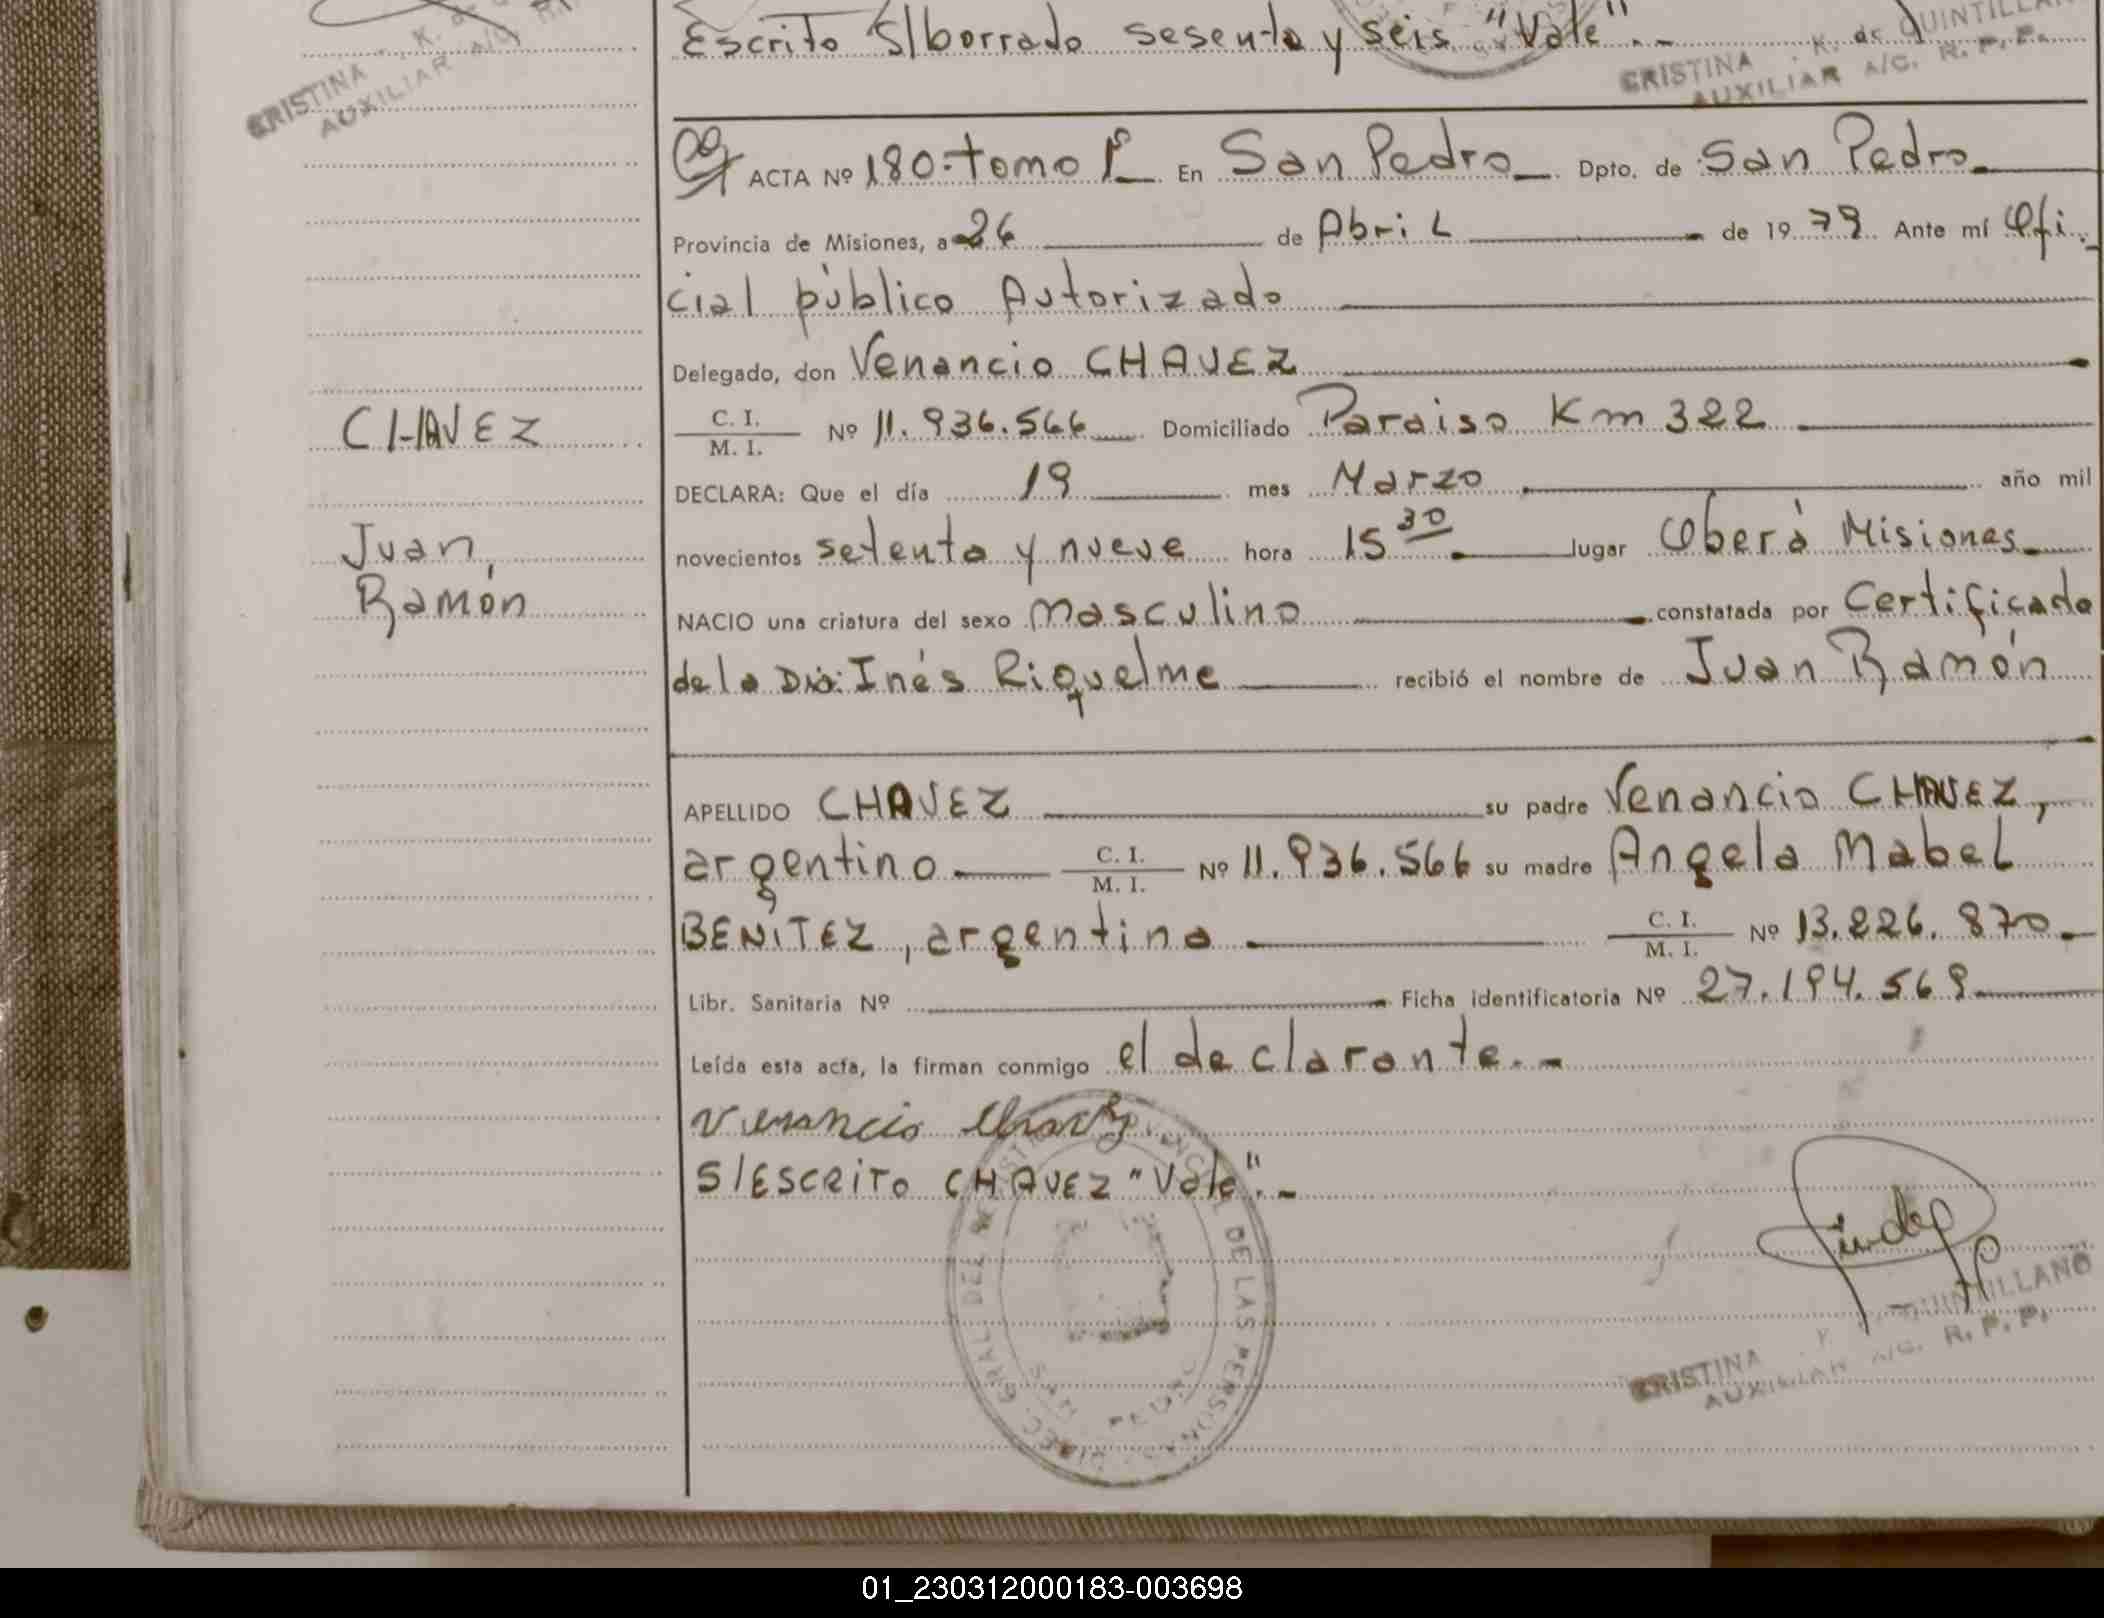 Escrito S/borrado sesenta y seis "Vale".-
K. de QUINTILLANO
CRISTINA
AUXILIAR A/C. R. P. P.
CRISTINA K. de
AUXILIAR A/C
ACTA Nº 180-tomo Iº En San Pedro Dpto. de San Pedro
Provincia de Misiones, a 26 de Abril de 1979 Ante mí Ofi-
cial público Autorizado
Delegado, don Venancio CHAVEZ
C. I.
M. I. Nº 11.936.566 Domiciliado Paraiso Km 322
DECLARA: Que el día 19 mes Marzo año mil
novecientos setenta y nueve hora 15 30 lugar Oberá Misiones
NACIO una criatura del sexo masculino constatada por Certificado
de la Dra: Inés Riquelme recibió el nombre de Juan Ramón
CHAVEZ
Juan
Ramón
APELLIDO CHAVEZ su padre Venancio CHAVEZ,
argentino C. I.
M. I. Nº 11.936.566 su madre Angela Mabel
BENITEZ, argentina C. I.
M. I. Nº 13.226.870
Libr. Sanitaria Nº Ficha identificatoria Nº 27.194.569
Leída esta acta, la firman conmigo el declarante.-
Venancio Chavez
S/ESCRITO CHAVEZ "Vale".-
DIREC. GRAL. DEL REGIST PROVINCIAL DE LAS PERSONAS
SAN PEDRO
QUINTILLANO
CRISTINA
AUXILIAR A/C. R. P. P.
01_230312000183-003698